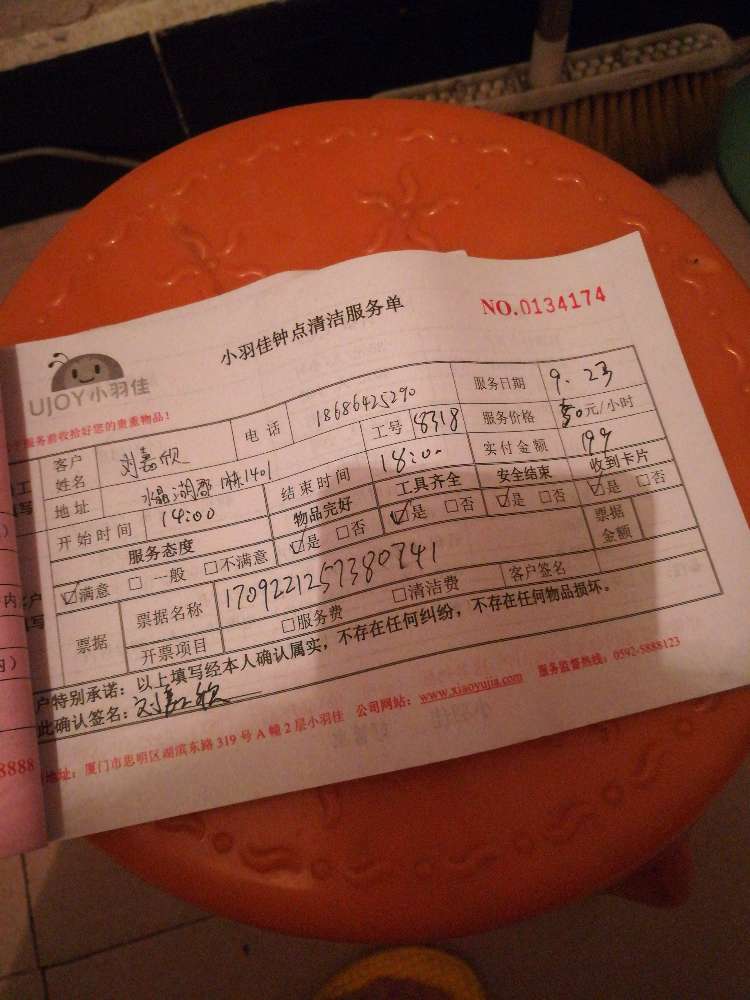 小羽佳钟点清洁服务单
NO.0134174
UJOY小羽佳
服务前收拾好您的贵重物品!
客户姓名 刘嘉欣 电话 18686425290 服务日期 9.23
地址 水晶湖郡 1栋1401 工号 8318 服务价格 元/小时
开始时间 14:00 结束时间 18:00 实付金额 199
服务态度 物品完好 工具齐全 安全结束 收到卡片
☑满意 □一般 □不满意 ☑是 □否 ☑是 □否 ☑是 □否 ☑是 □否
票据 票据名称 1709221257380741 票据金额
开票项目 □服务费 □清洁费 客户签名
户特别承诺：以上填写经本人确认属实，不存在任何纠纷，不存在任何物品损坏。
此确认签名：刘嘉欣
地址：厦门市思明区湖滨东路319号A幢2层小羽佳 公司网站：www.xiaoyujia.com 服务监督热线：0592-5888123
8888